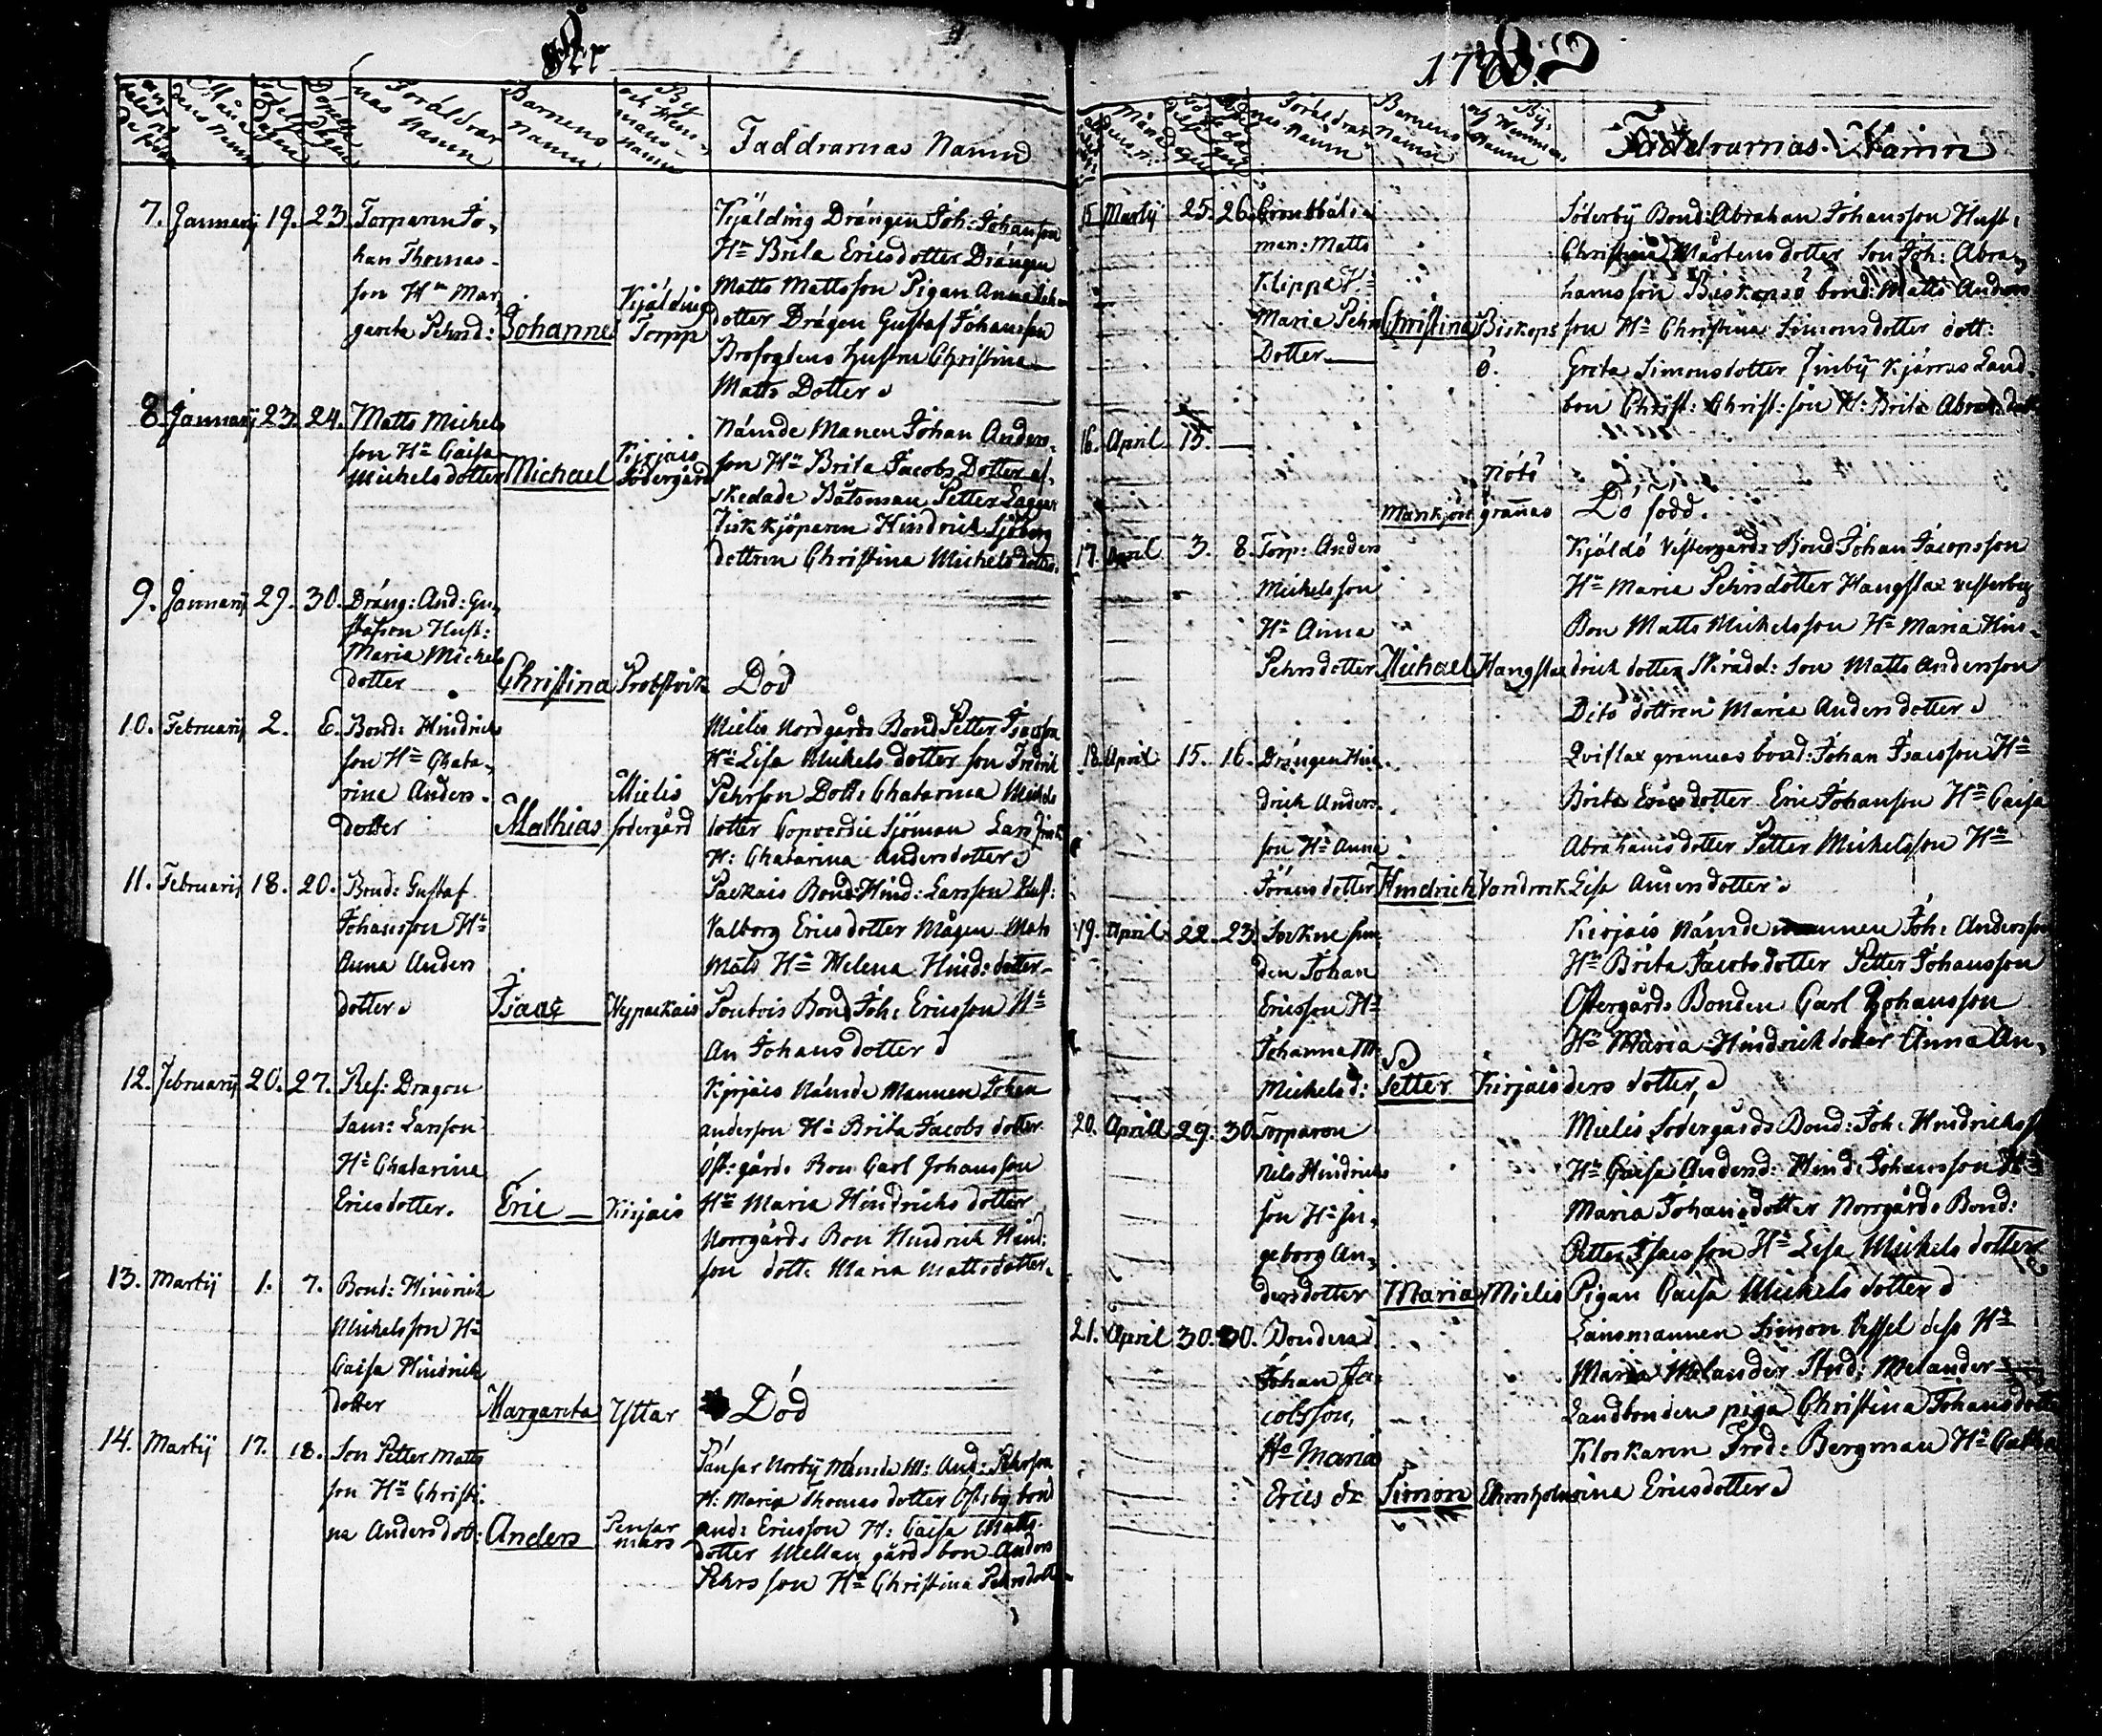 År
Månadens Namn
Föräldrarnas Namn
Barnens Namn
By och Hemmans Namn
Faddrarnas Namn
7. Januarij 19. 23. Torparen Jo-
han Thomas-
son Hu Mar
gareta Pehrsd: Johannes Kjälding Torpp
Kjälding Drängen Joh: Johansson
Hu Brita Ericsdotter Drängen
Matts Mattsson Pigan Anna
dotter Drägen Gustaf Johansson
Brofogdens hustru Christina
Matts Dotter
8. Januarij 23. 24. Matts Michels
son Hu Caisa
Michelsdotter Michael Kirjais Södergård
Nämde Manen Johan Anders-
son Hu Brita Jacobs Dotter af-
skedade Båtsman Petter Lagger
Fiskkjöparen Hindrich Sjöberg
dottren Christina Michelsdotter
9. Januarij 29. 30. Dräng: And: Gu-
stafson Hust:
Maria Michels
dotter Christina Probstvik Död
10. Februarij 2. 6. Bond: Hindrichs
son Hu Chata-
rina Anders-
dotter Mathias Mielis södergård
Mielis Nordgårds Bond Petter Isacsson
Hu Lisa Michels dotter son Fredrik
Pehrson Dott: Chatarina Michels
dotter Copverdie Sjöman Lars
H: Chatarina Andersdotter
11. Februarij 18. 20. Bond: Gustaf
Johansson Hu
Anna Anders
dotter Isaac Nypackais
Packais Bond: Hind: Larsson Hust:
Valborg Ericsdotter Mågen Mats
Mats Hu Helena Hind: dotter
Poutois Bond Joh: Ericsson Hu
An Johansdotter
12. Februarij 20. 27. Ref: Dragon
Sam: Larsson
Hu Chatarina
Ericsdotter. Eric Kirjais
Kirjais Nämde Mannen Johan
anderson Hu Brita Jacobs dotter
Öst: gårds Bon Carl Johansson
Hu Maria Hindrichs dotter
Norrgårds Bon Hindrich Hind:
son dott: Maria Mattsdotter
13. Martij 1. 7. Bond: Hindrich
Michelsson Hu
Caisa Hindrich
dotter Margareta Yttar Död
14. Martij 17. 18. Son Petter Matts
son Hu Christi-
na Andersdott: Anders Pensar mars
Pänsar Norby Nämde M: And: Pehrson
H: Maria Thomas dotter Östsby bond
and: Ericsson H: Caisa Matts
dotter Mellan gårds bon Anders
Pehrsson Hu Christina Pehrsdotter
178
Föräldrarnas Namn
Barnens Namn
By och Hemmans Namn
Faddrarnas Namn
15. Martij 25. 26. Gronbåts-
man: Matts
Klippa H:
Maria Pehrs
Dotter Christina Biskopsö.
Söderby Bond: Abraham Johansson Hust:
Christina Mårtensdotter Son Joh: Abra-
hamsson Biskopsö bond: Matts Anders
son Hu Christina Simonsdotter dott:
Greta Simonsdotter Finby Kjärras Land-
bon Christ: Christ: son H: Brita Abrah: dott
16. April 15. Mankjön Nötö grannas Dö född.
17. April 3. 8. Torp: Anders
Michelsson
Hu Anna
Pehrsdotter Michael Hangslax
Kjäldö Vestergårds Bond Johan Jacopsson
Hu Maria Pehrsdotter Hangslax vesterby
Bon Matts Michelsson Hu Maria Hin-
drich dotter Skrädd: Son Matts Andersson
Dito dottren Maria Andersdotter
18. April 15. 16. Drängen Hin-
drich Anders
son Hu Anna
Jöransdotter Hindrich Vandrock
Qvislax grannas bond: Johan Isacsson Hu
Brita Ericsdotter Eric Johanson Hu Caisa
Abrahamsdotter Petter Michelsson Hu
Lisa Andersdotter
19. April 22. 23. Sockne
den Johan
Ericsson Hu
Johanna M
Michelsd: Petter Kirjais
Kirjais Nämdemannen Joh: Andersson
Hu Brita Jacobsdotter Petter Johansson
Östergårds Bonden Carl Johansson
Hu Maria Hindrichdotter Anna An-
ders dotter,
20. Aprill 29. 30. Torparen
Nils Hindrichs
son Hu In-
geborg An-
dersdotter Maria Mielis
Mielis Södergårds Bond: Joh: Hindrichss
Hu Caisa Andersd: Hind: Johansson Hu
Maria Johansdotter Norrgårds Bond:
Petter Isacsson Hu Lisa Michels dotter
Pigan Caisa Michels dotter
21. April 30. 30. Bonden
Johan Ja-
cobsson,
Hu Maria
Erics dr Simon Ernholm
Länsmannen Simon Össel dess Hu
Maria Melander Stud: Melander
Landbonden piga Christina Johansdotter
Klockaren Fred: Bergman Hu Catha
rina Ericsdotter